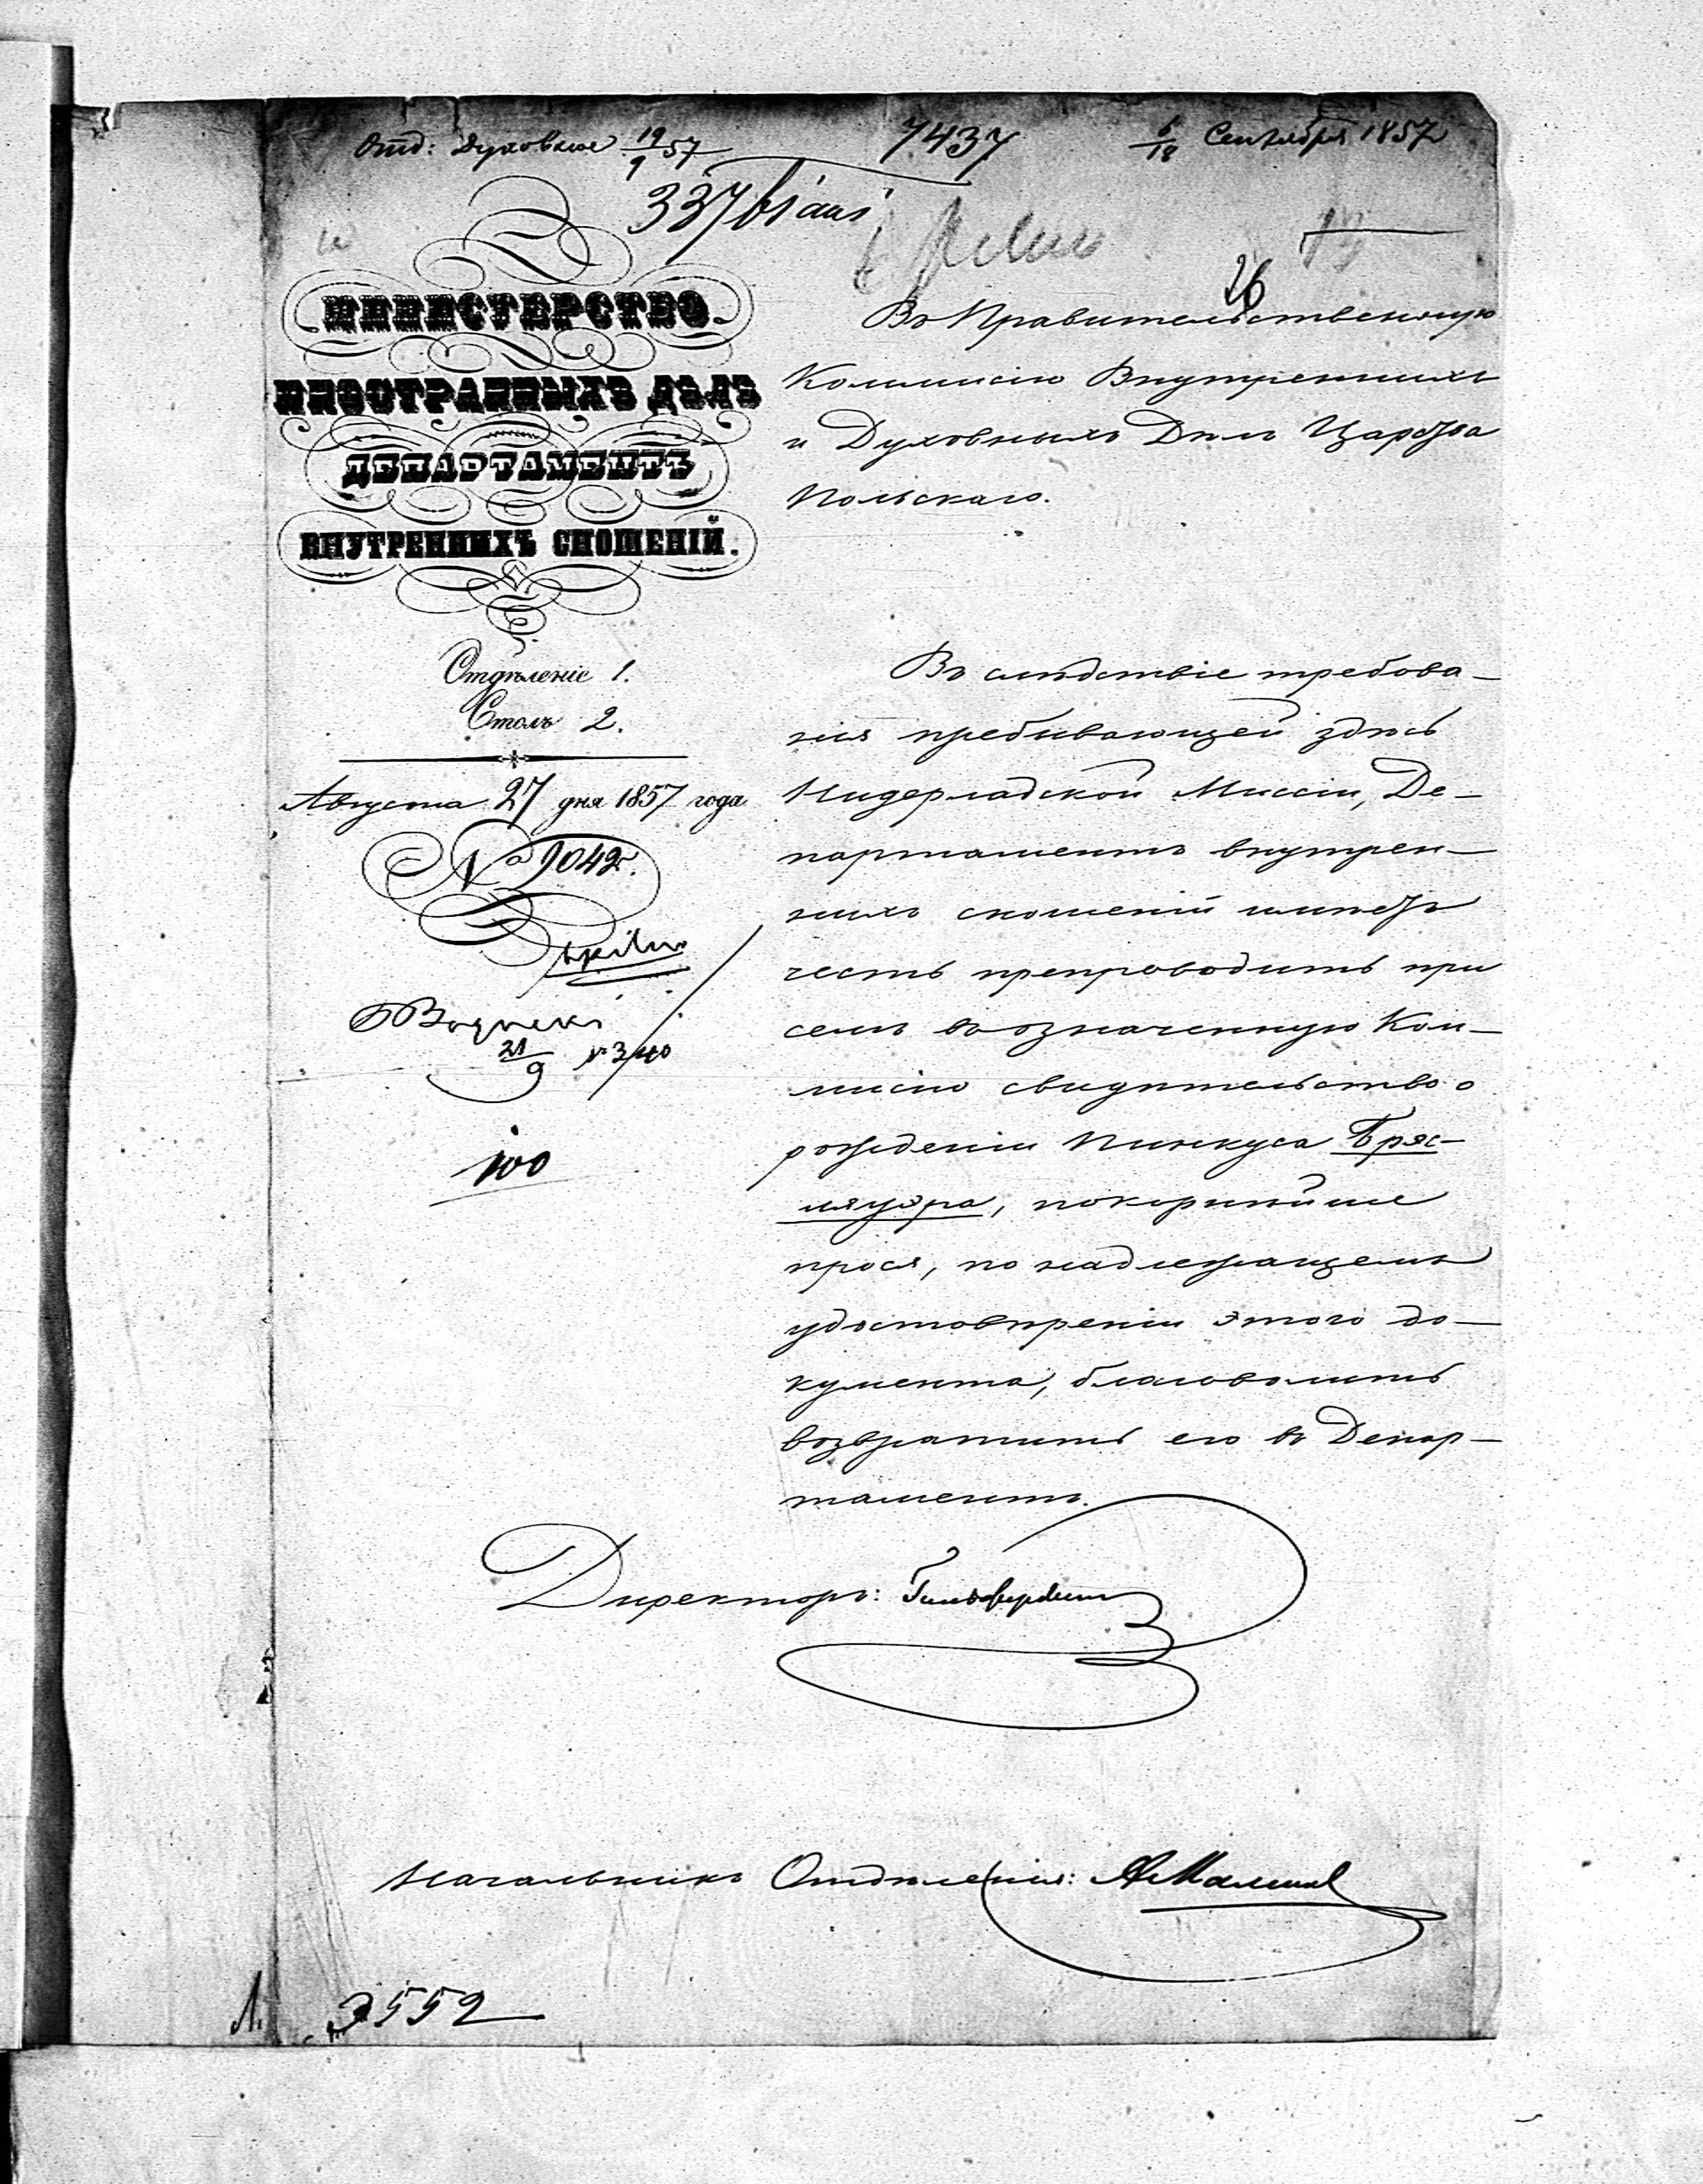 Отд: Духовное 19/9 57
7437
6/18 Сентября 1857
337
26
МИНИСТЕРСТВО
ИНОСТРАННЫХЪ ДѢЛЪ
ДЕПАРТАМЕНТЪ
ВНУТРЕННИХЪ СНОШЕНІЙ.
Отдѣленіе 1.
Столъ 2.
Августа 27 дня 1857 года
№ 9042.
21/9 № 3740
100
Въ Правительственную
Коммисію Внутреннихъ
и Духовныхъ Дѣлъ Царства
Польскаго.
Въ слѣдствіе требова-
нія пребывающей здѣсь
Нидерладской Миссіи, Де-
партаментъ внутрен-
нихъ сношеній имѣетъ
честь препроводить при
семъ въ означенную Ком-
мисію свидѣтельство о
рожденіи Пинкуса Бряс-
ляуэра, покорнѣйше
прося, по надлежащемъ
удостовѣреніи этого до-
кумента, благоволить
возвратить его въ Депар-
таментъ.
Директоръ:
Начальникъ Отдѣленія:
Л. 3552